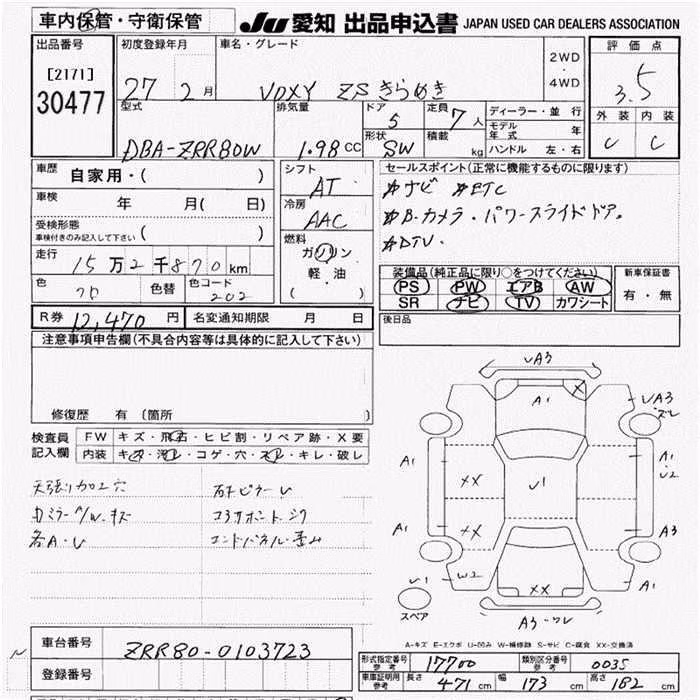 車内保管・守衛保管
JU 愛知 出品申込書 JAPAN USED CAR DEALERS ASSOCIATION
出品番号
[2171]
30477
初度登録年月
27 2 月
車名・グレード
VOXY ZSきらめき
2WD
・
4WD
評価点
3.5
外装 内装
C C
型式
DBA-ZRR80W
排気量
1.98 CC
ドア
5
形状
SW
定員
7 人
積載
kg
ディーラー・並行
モデル年式 年
ハンドル 左・右
車歴
自家用・( )
車検
年 月( 日)
受検形態
車検付きのみ記入して下さい ( )
走行
15 万 2 千 870 km
色
クロ
色替
色コード
202
シフト
AT
冷房
AAC
燃料
ガソリン
軽・油
( )
セールスポイント(正常に機能するものに限ります)
#ナビ #ETC
#B.カメラ・パワースライドドア。
#DTV.
装備品(純正品に限り○をつけてください)
PS PW エアB AW
SR ナビ TV カワシート
新車保証書
有・無
R券 12,470 円 名変通知期限 月 日
後日品
注意事項申告欄(不具合内容等は具体的に記入して下さい)
修復歴 有 (箇所 )
検査員
記入欄
FW キズ・飛石・ヒビ割・リペア跡・X要
内装 キズ・汚レ・コゲ・穴・スレ・キレ・破レ
天張り加工穴
カミラー/W.キズ
各A・U
右Fピラーu
コアサポート.サク
エンドパネル・歪み
UA3
A1
UA3
ズレ
A1
XX
U1
A1
U2
A3
XX
A3
U1
W2
XX
A1
A1
スペア
A3・ワレ
A-キズ E-エクボ U-凹み W-補修跡 S-サビ C-腐食 XX-交換済
車台番号 ZRR80-0103723
登録番号
形式指定番号
参考
17700
類別区分番号
参考
0035
車庫証明用
参考
長さ 471 cm
幅 173 cm
高さ 182 cm